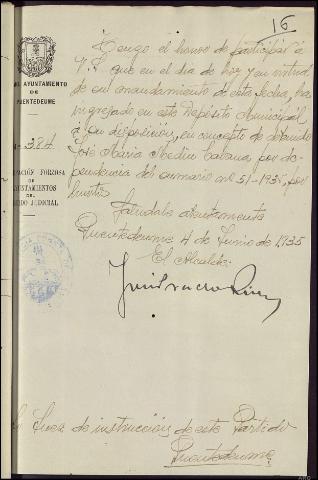 16
Tengo el honor de participar a
V.S. que en el dia de hoy y en virtud
de su mandamiento de esta fecha, ha
ingresado en este Depósito Municipal
a su disposición, en concepto de detenido
José Maria
pendencia del sumario nº 51-1935, por
hurto
Saludale atentamente
Puentedeume 4 de Junio de 1935
El Alcalde
AYUNTAMIENTO
DE
PUENTEDEUME
384
FORZOSA
DE
AYUNTAMIENTOS
DEL
JUDICIAL
Juez de instrucción de este Partido
Puentedeume